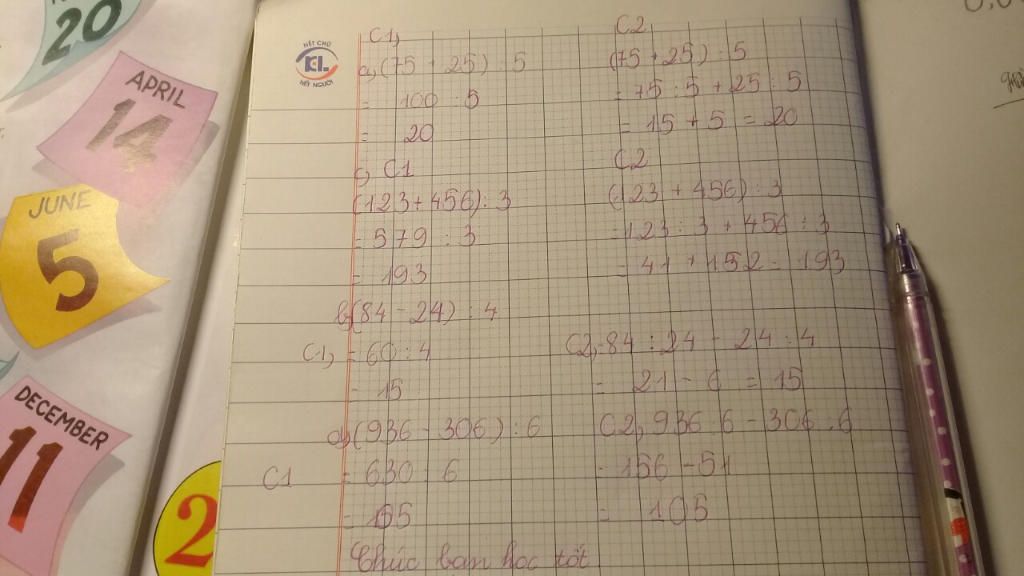 20
APRIL
14
JUNE
5
DECEMBER
11
2
NÉT CHỮ
KL
NẾT NGƯỜI
C1, C2
a, (75 + 25) : 5 (75 + 25) : 5
= 100 : 5 = 75 : 5 + 25 : 5
= 20 = 15 + 5 = 20
c, C1 C2
(123 + 456) : 3 (123 + 456) : 3
= 579 : 3 = 123 : 3 + 456 : 3
= 193 = 41 + 152 = 193
b, (84 - 24) : 4
C1, = 60 : 4 C2, = 84 : 24 - 24 : 4
= 15 = 21 - 6 = 15
d, (936 - 306) : 6 C2, 936 : 6 - 306 : 6
C1 = 630 : 6 = 156 - 51
= 105 = 105
Chúc bạn học tốt